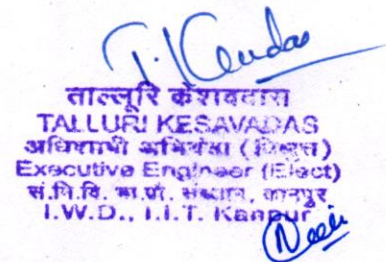 T. Kesavdas
ताल्लूरि केशवदास
TALLURI KESAVADAS
अधिशासी अभियंता (विद्युत)
Executive Engineer (Elect)
सं.नि.वि. भा.प्रौ. संस्थान, कानपुर
I.W.D., I.I.T. Kanpur